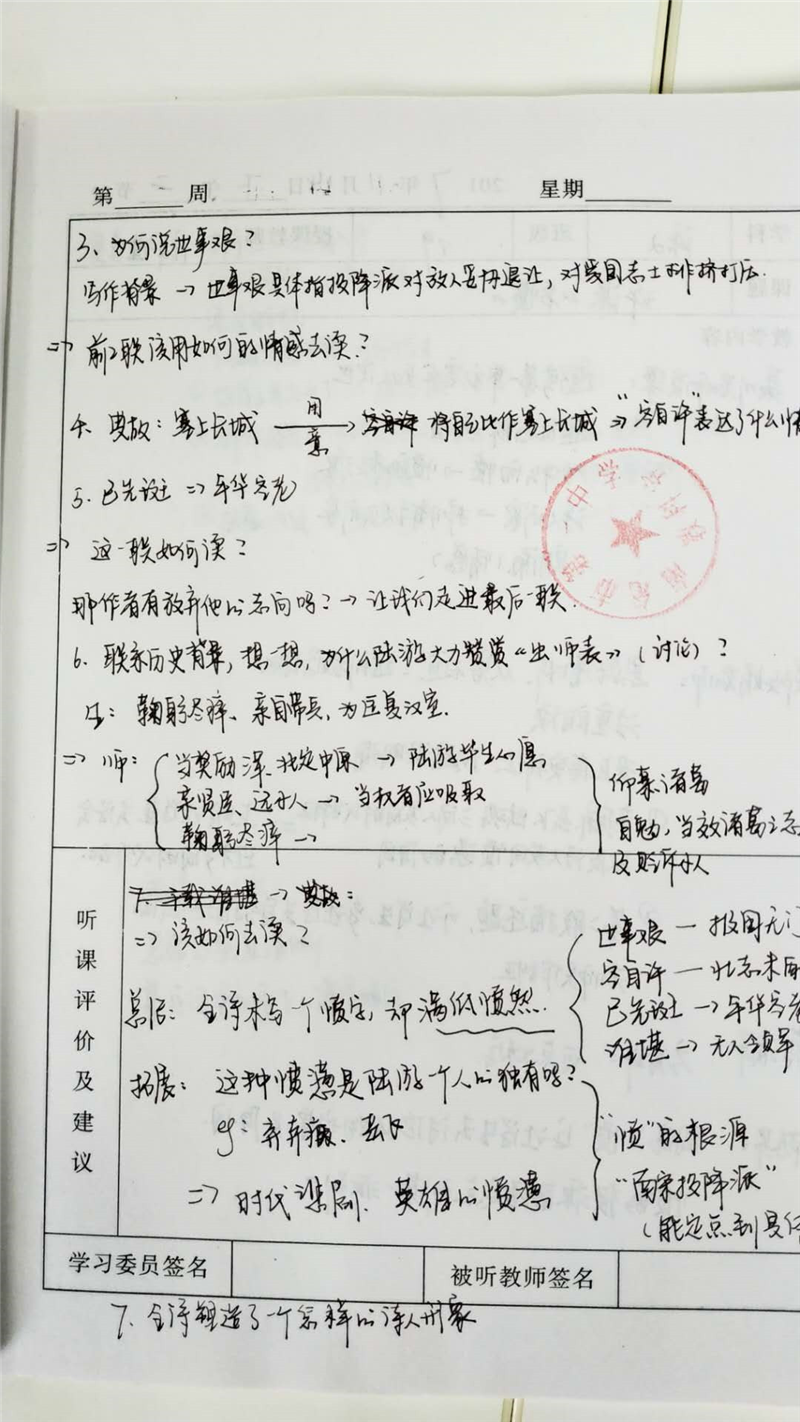 第 周 星期
3、为何说世事艰?
写作背景 → 世事艰具体指投降派对敌人妥协退让,对爱国志士排挤打压.
⇒ 前2联该用如何的情感去读?
4、典故:塞上长城 用意→ 将自己比作塞上长城 ⇒ "空自许"表达了什么情
5、已先斑 ⇒ 年华空老
⇒ 这一联如何读?
那作者有放弃他的志向吗?→ 让我们走进最后一联.
6、联系历史背景,想一想,为什么陆游大力赞赏《出师表》(讨论)?
生:鞠躬尽瘁、亲自带兵,为匡复汉室.
⇒ 师:当奖励 深、北定中原 → 陆游毕生心愿
亲贤臣、远小人 → 当权者应吸取
鞠躬尽瘁 →
仰慕诸葛
自勉,当效诸葛之志
及贬斥小人
听课评价及建议
→ 典故:
⇒ 该如何去读?
总结:全诗未写一个愤字,却满纸愤然.
世事艰 — 报国无门
空自许 — 壮志未
已先斑 → 年华空老
谁堪 → 无人
拓展:这种愤懑是陆游个人的独有吗?
eg:辛弃疾、岳飞
⇒ 时代悲剧、英雄的愤懑
"愤"的根源
"南宋投降派"
(能定点到具体
学习委员签名 被听教师签名
7、全诗塑造了一个怎样的诗人形象